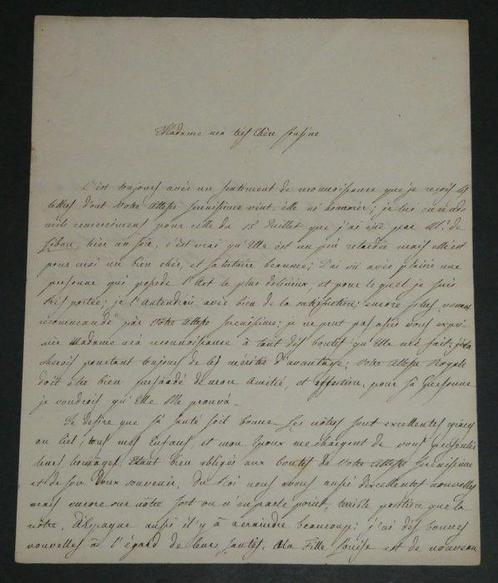 Madame ma très chère Cousine
C'est toujours avec un sentiment de reconnoissance que je reçois les
lettres dont Votre Altesse Serenissime veut elle m'honnorer; je lui en rends
mils remerciment pour celle du 18 Juillet que j'ai eue par Mr. de
hier au soir, c'est vrai qu'Elle est un peu retardée mais elle est
pour moi un bien cher, et salutaire beaume; J'ai vu avec plaisir une
personne qui possede l'Art le plus delicieux, et pour lequel je suis
très portée; je l'entendrai avec bien de la satisfaction; encore plus, venant
recommandé par Votre Altesse Serenissime; je ne peut pas assés vous expri
mer Madame ma reconnoissance à tout des bontés qu'Elle me fait, je
cherois pourtant toujour de les mérités d'avantage; Votre Altesse Royale
doit être bien persuadé de mon Amitié, et affection, pour sa Personne
je voudrois qu'Elle me prouva.
Je desire que sa santé soit bonne. Les nôtres sont excellentes grâces
au Ciel; tous mes Enfans et mon Epoux me chargent de vous presenter
leurs hommages, étant bien obligés aux bontés de Votre Altesse Serenissime
et de son doux souvenir, du Roi nous avons aussi d'excellentes nouvelles
mais encore sur nôtre sort on n'en parle point, terrible position que la
nôtre, d'Espagne aussi il y a à craindre beaucoup; j'ai des bonnes
nouvelles à l'égard de leurs santés, Ma Fille Louise est de nouveau